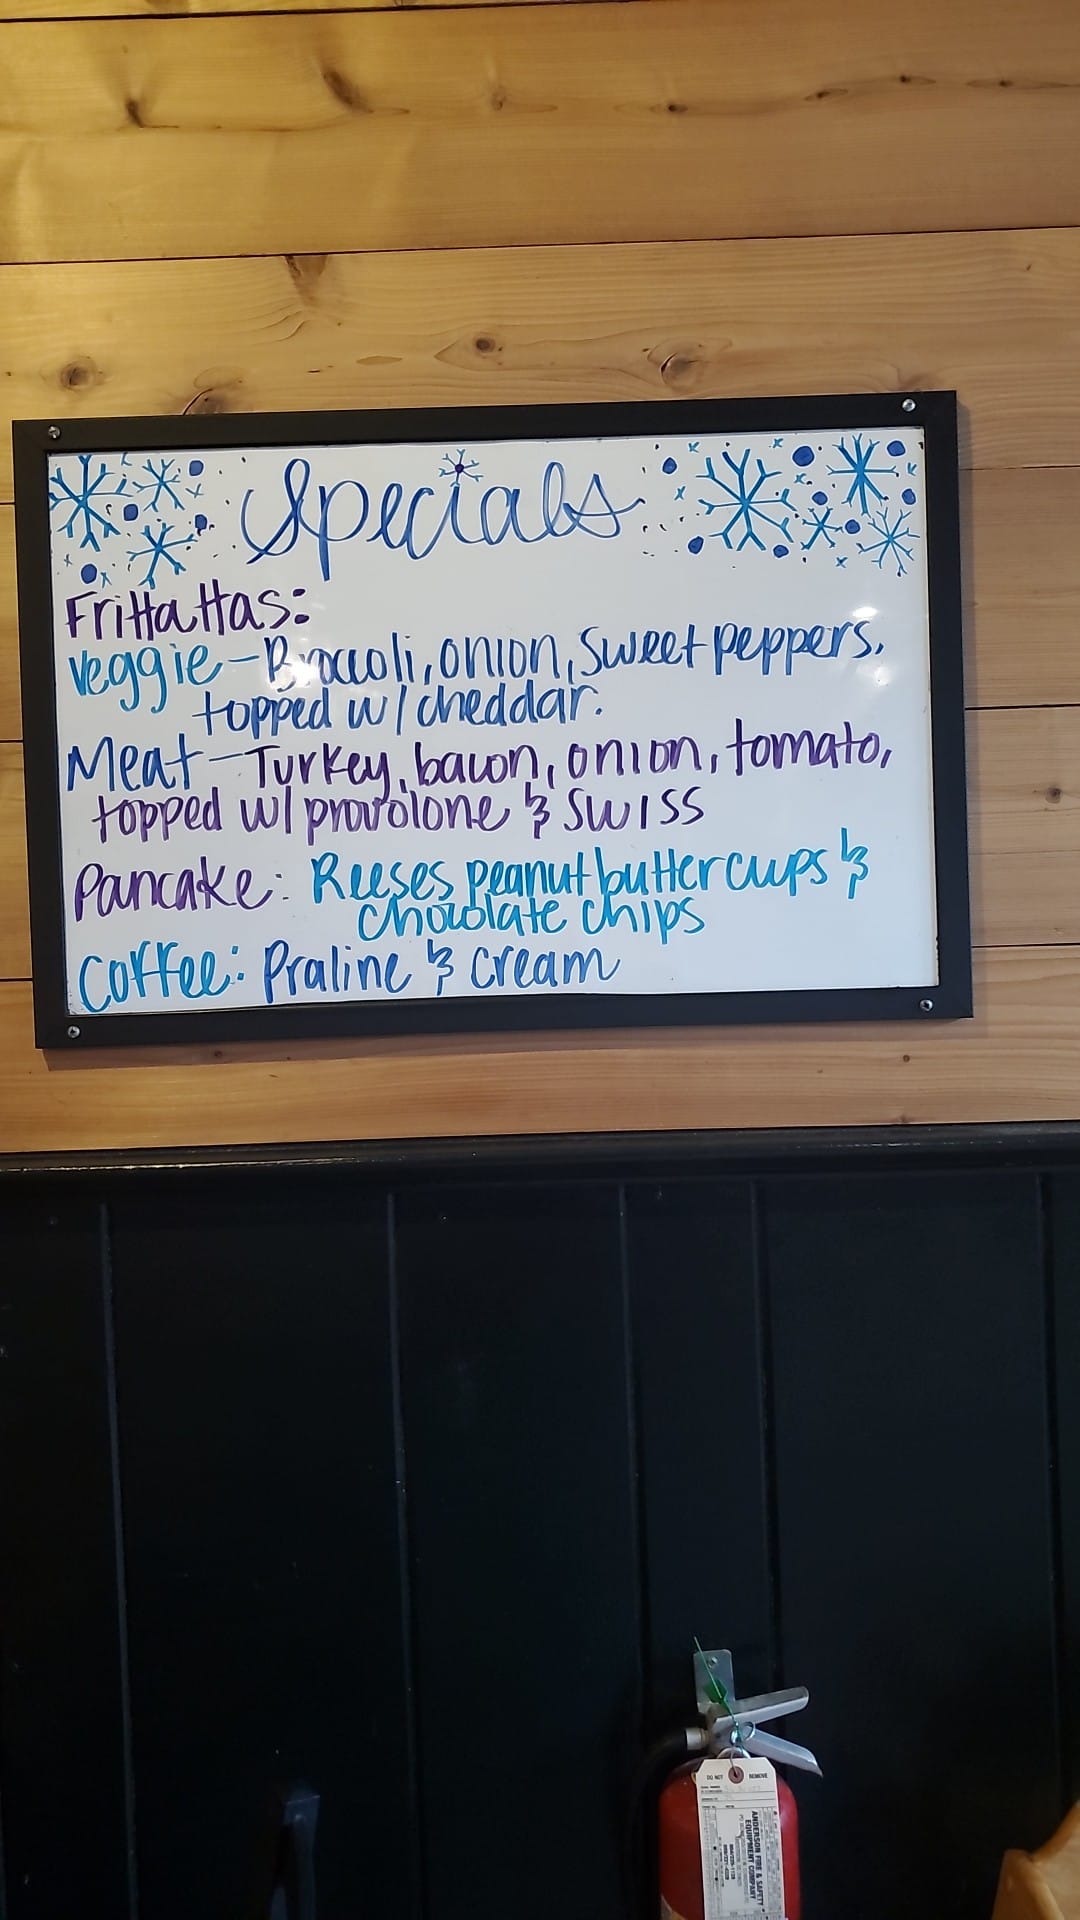 Specials
Frittattas:
Veggie - Broccoli, onion, sweet peppers,
topped w/ cheddar.
Meat - Turkey, bacon, onion, tomato,
topped w/ provolone & swiss
Pancake: Reeses peanut butter cups &
chocolate chips
Coffee: Praline & cream
DO NOT REMOVE
ANDERSON FIRE & SAFETY
EQUIPMENT COMPANY